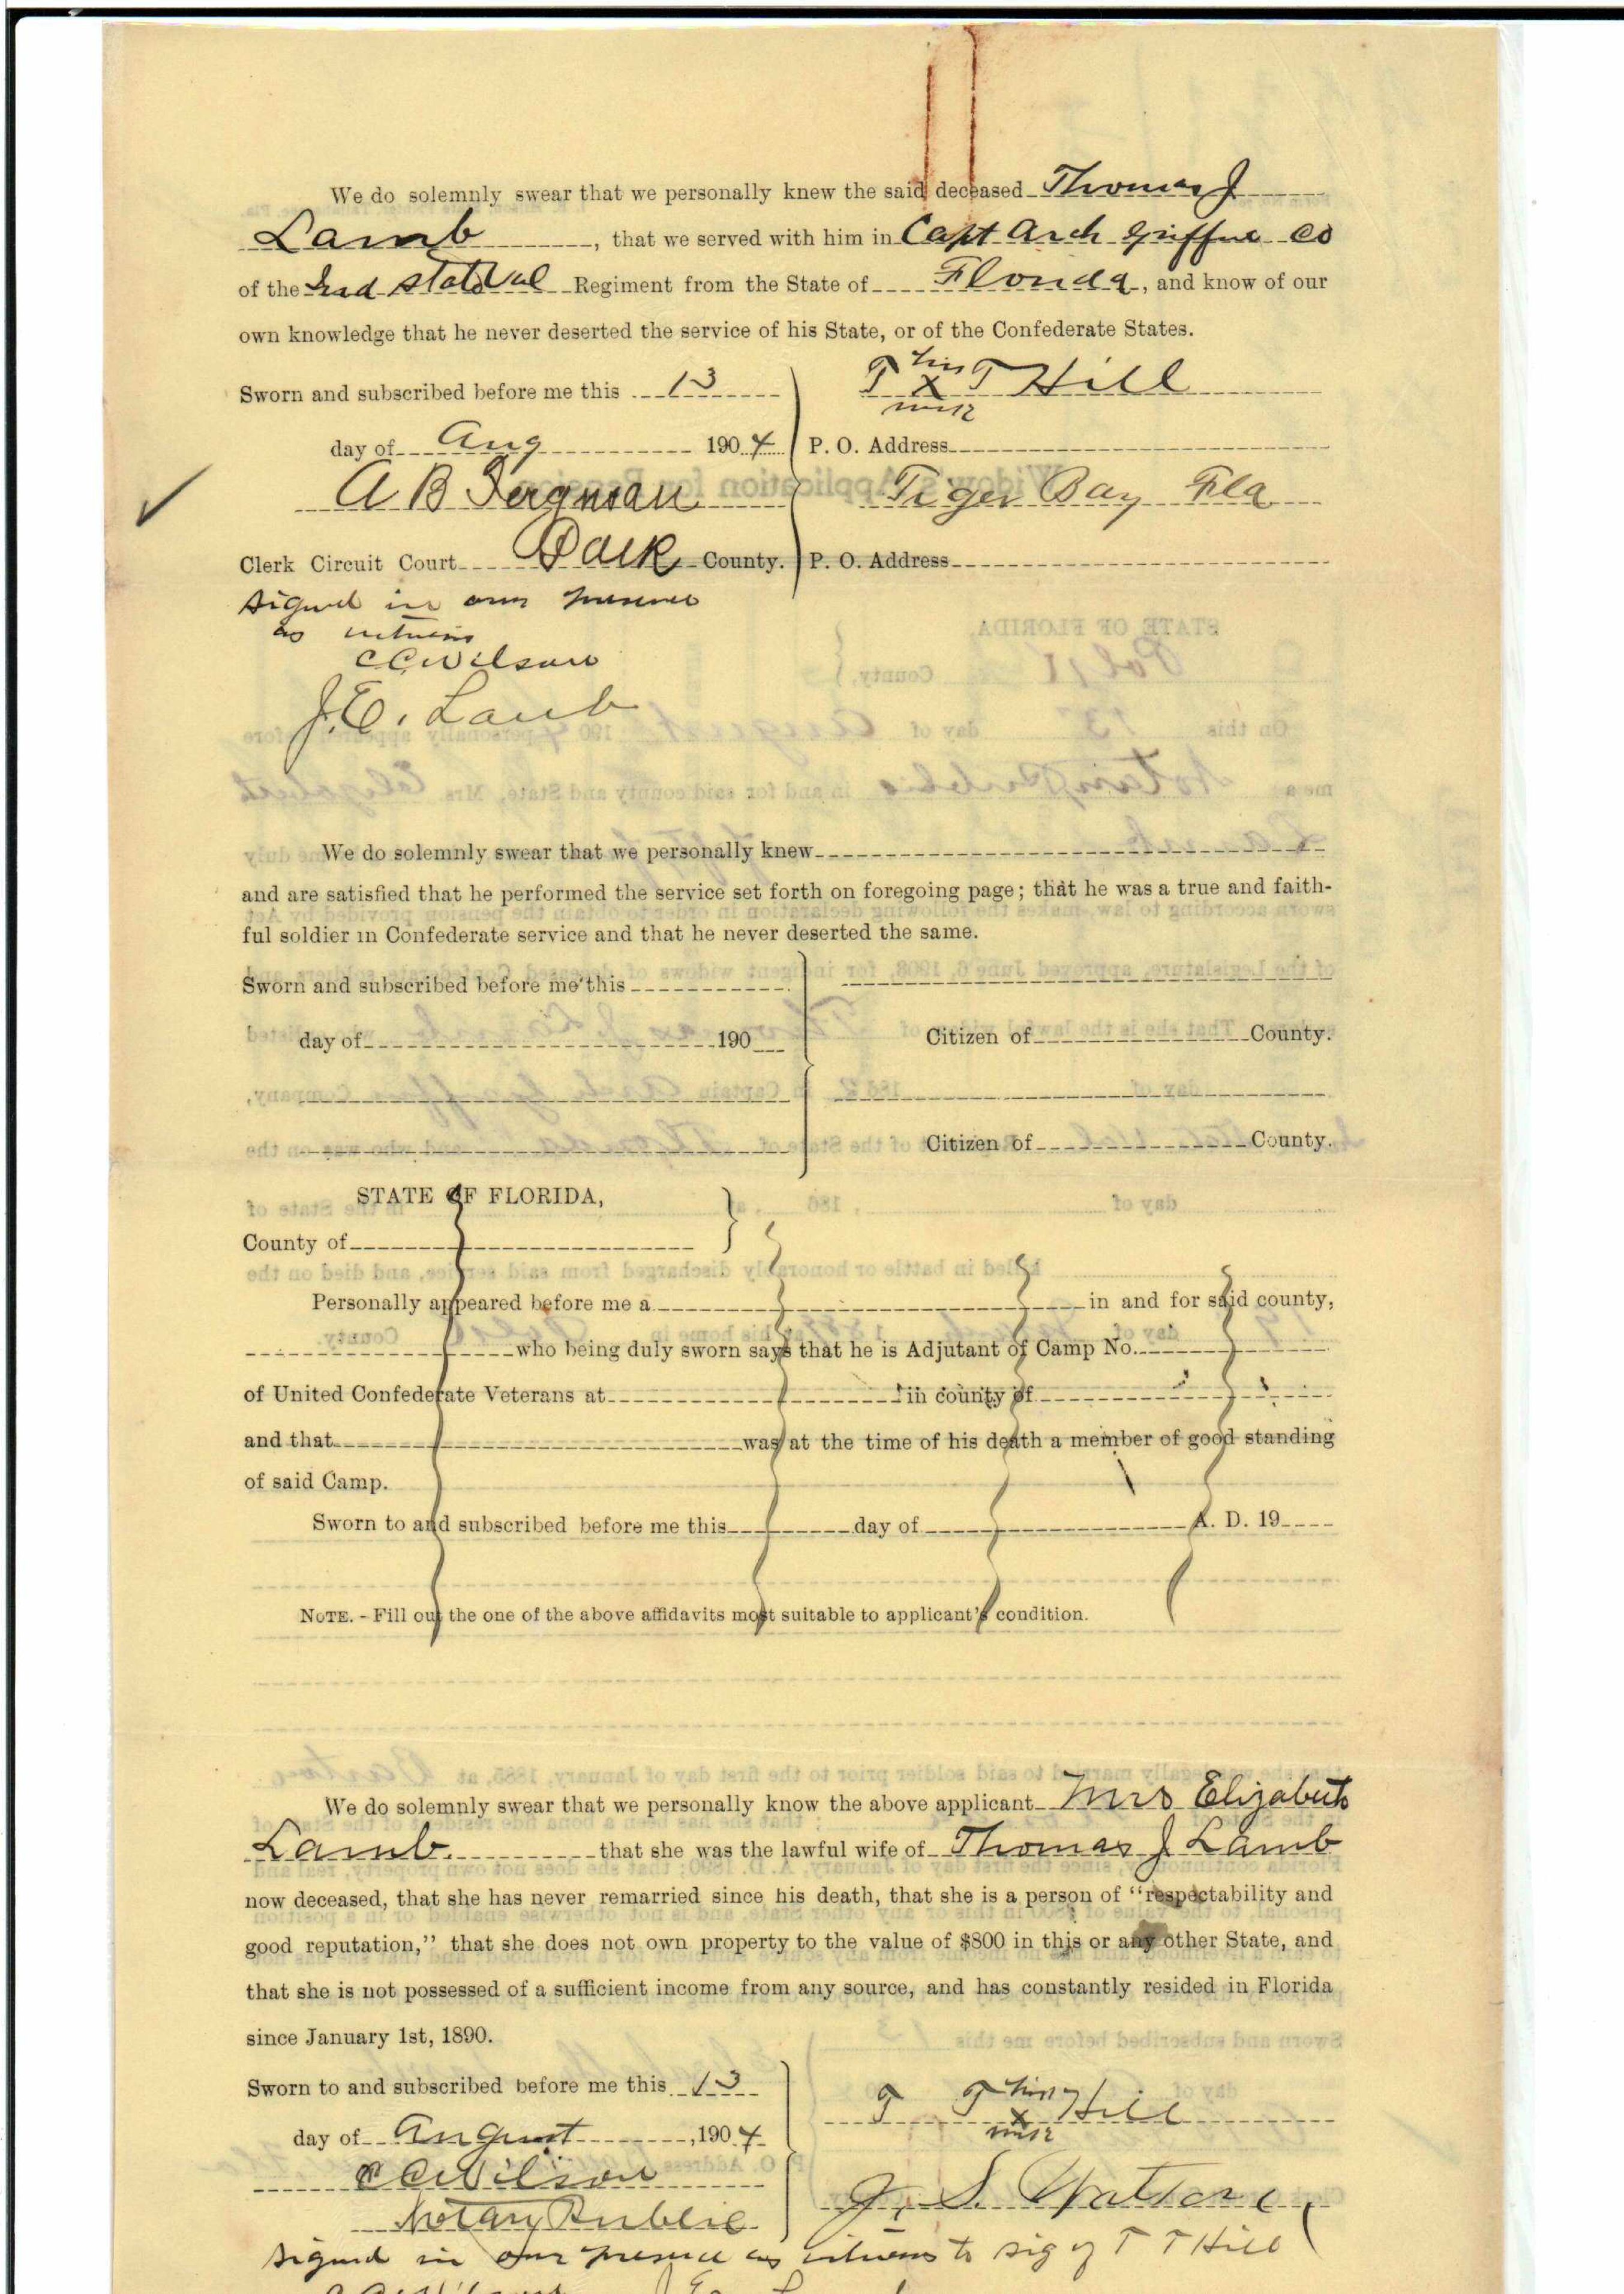 We do solemnly swear that we personally knew the said deceased Thomas J
Lamb, that we served with him in Capt Arch Griffin Co
of the State Regiment from the State of Florida, and know of our
own knowledge that he never deserted the service of his State, or of the Confederate States.
Sworn and subscribed before me this 13
T his T Hill
X
day of Aug 1904
P. O. Address
A B Ferguson
Tiger Bay Fla
Clerk Circuit Court Polk County.
P. O. Address
signed in our presence
as witness
C C Wilson
J. E. Lamb
We do solemnly swear that we personally knew
and are satisfied that he performed the service set forth on foregoing page; that he was a true and faith-
ful soldier in Confederate service and that he never deserted the same.
Sworn and subscribed before me this
day of 190
Citizen of County.
Citizen of County.
STATE OF FLORIDA,
County of
Personally appeared before me a in and for said county,
who being duly sworn says that he is Adjutant of Camp No.
of United Confederate Veterans at in county of
and that was at the time of his death a member of good standing
of said Camp.
Sworn to and subscribed before me this day of A. D. 19
NOTE. - Fill out the one of the above affidavits most suitable to applicant's condition.
We do solemnly swear that we personally know the above applicant Mrs Elizabeth
Lamb. that she was the lawful wife of Thomas J Lamb
now deceased, that she has never remarried since his death, that she is a person of "respectability and
good reputation," that she does not own property to the value of $800 in this or any other State, and
that she is not possessed of a sufficient income from any source, and has constantly resided in Florida
since January 1st, 1890.
Sworn to and subscribed before me this 13
T T his Hill
X
day of August, 1904
C C Wilson
J. S. Watson
Notary Public
signed in our presence as witness to sig of T T Hill